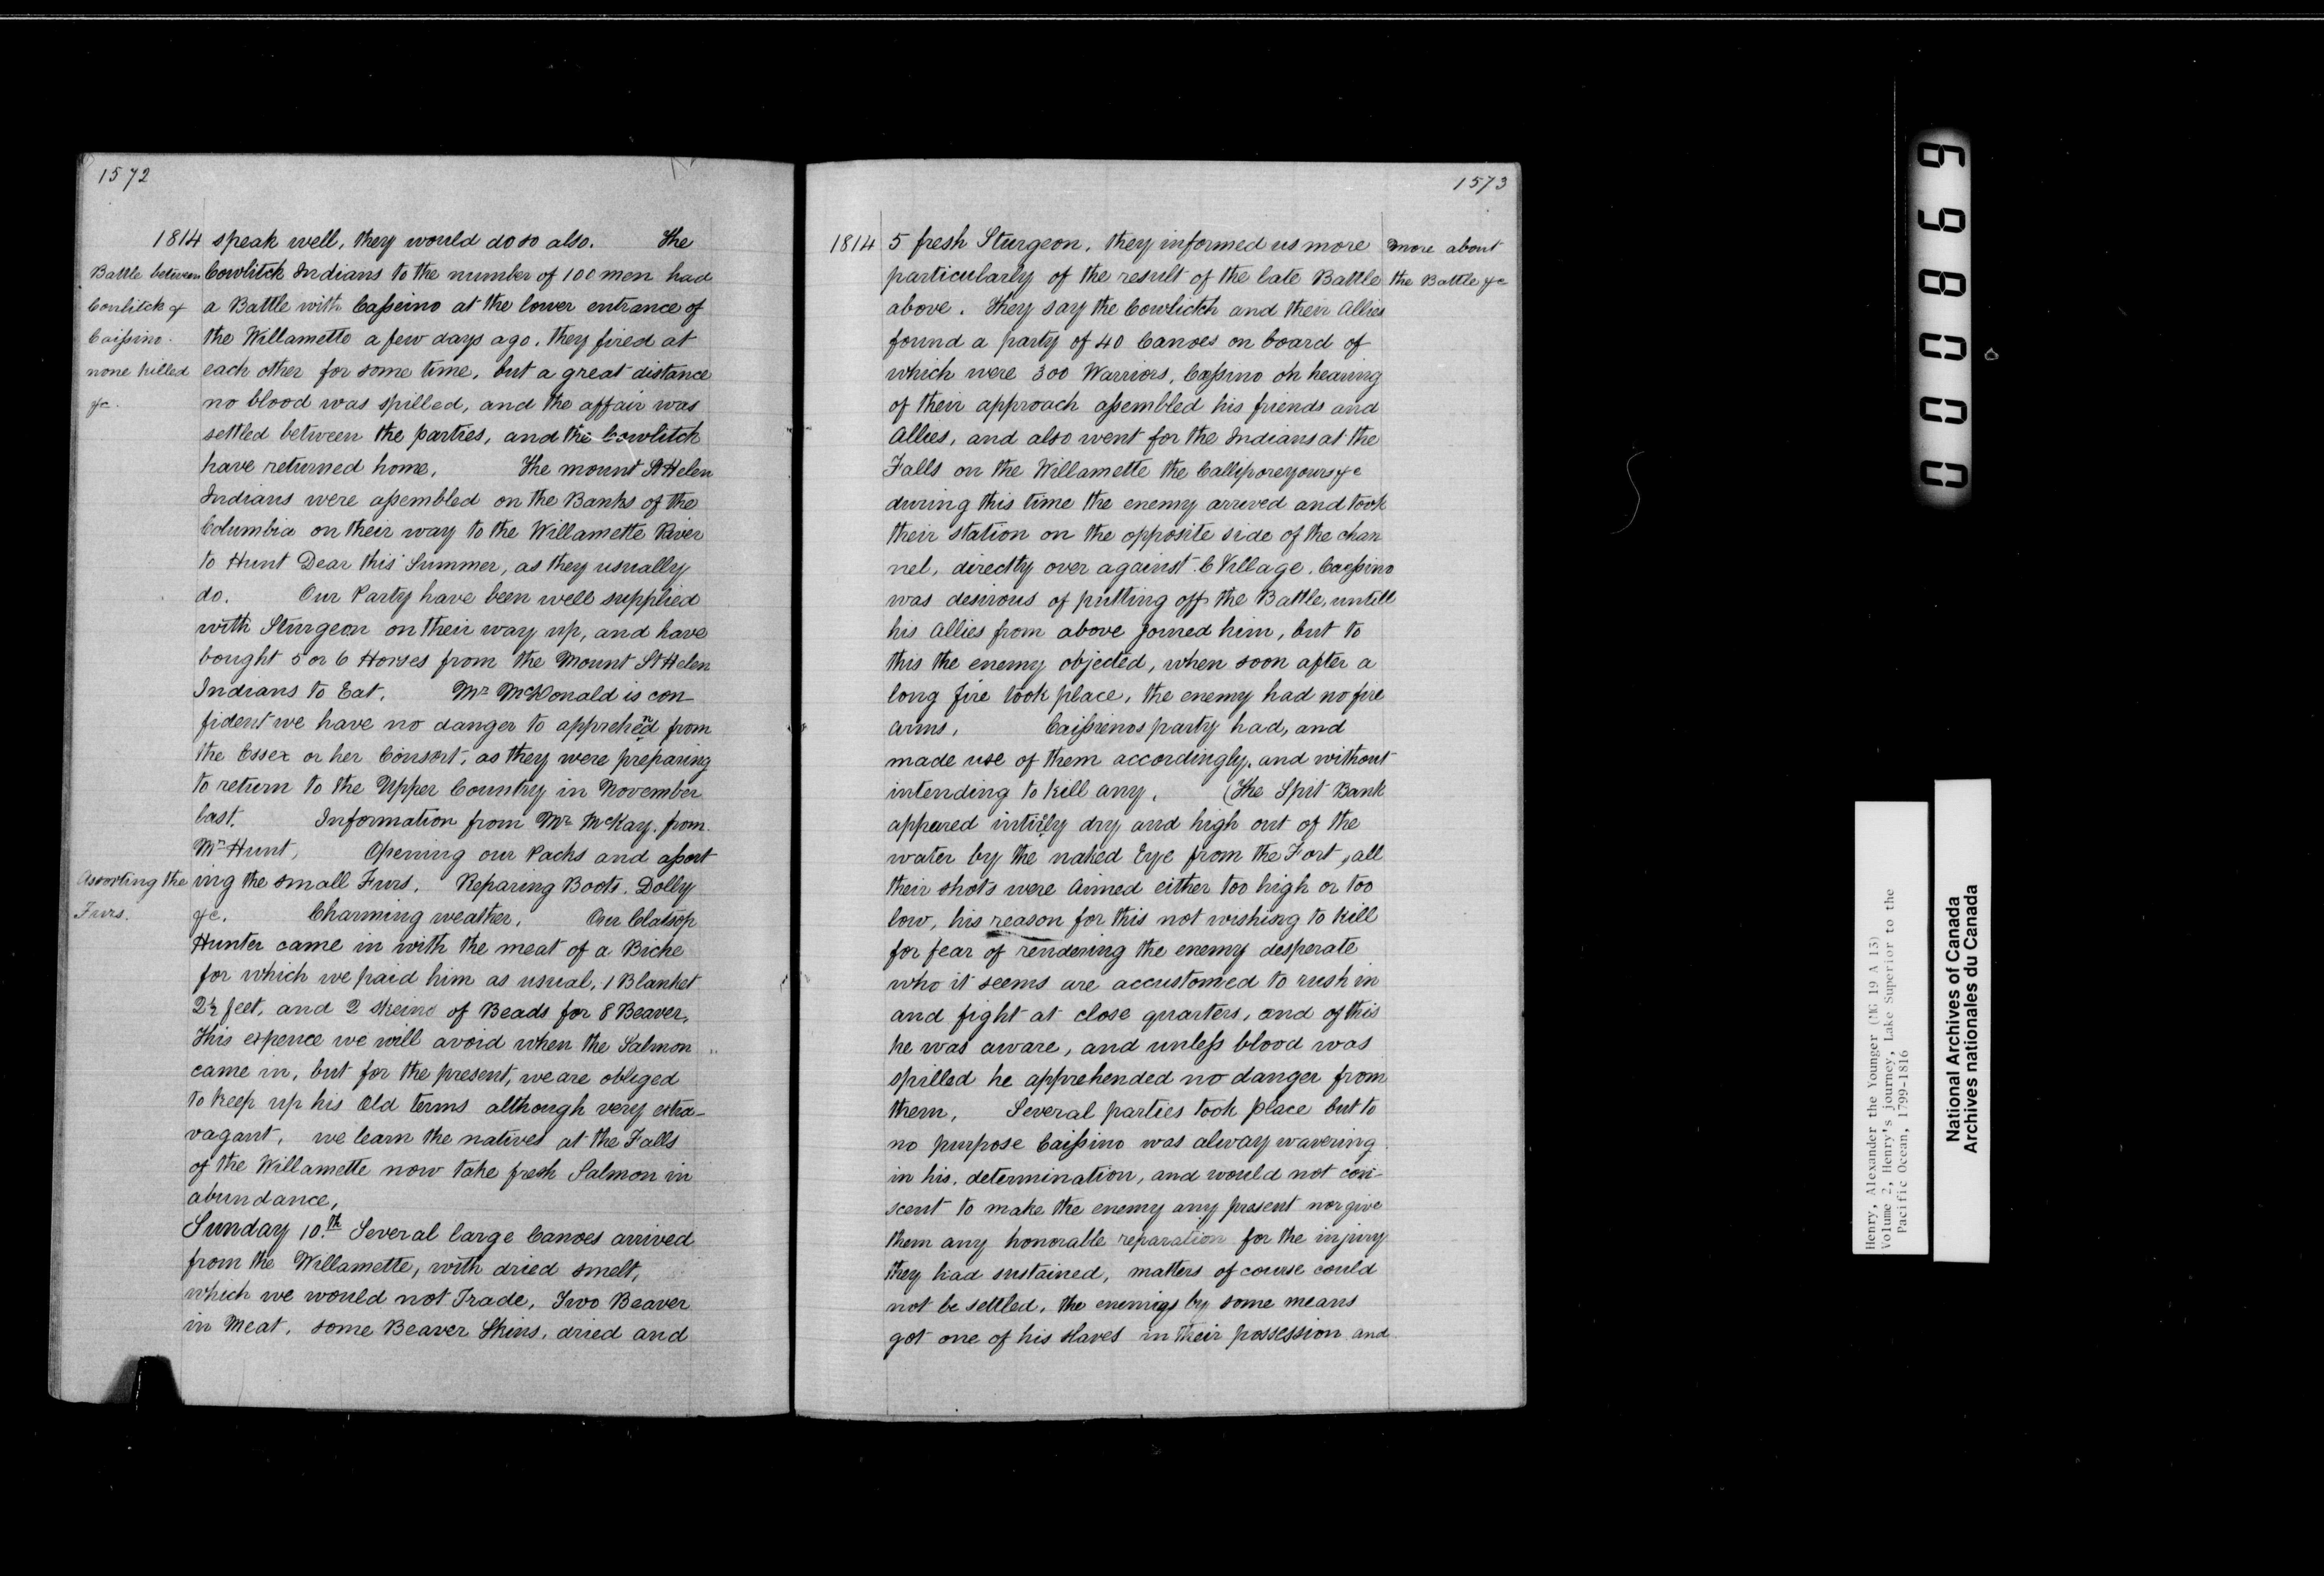 1572
1814 speak well, they would do so also. The
Battle between Cowlitck Indians to the number of 100 men had
Coulitck & a Battle with Caßeino at the lower entrance of
Caißino. the Willamette a few days ago. they fired at
none killed each other for some time, but a great distance
&c. no blood was spilled, and the affair was
settled between the parties, and the Cowlitch
have returned home. The mount St Helen
Indians were aßembled on the Banks of the
Columbia on their way to the Willamette River
to Hunt Dear this Summer, as they usually
do. Our Party have been well supplied
with Sturgeon on their way up, and have
bought 5 or 6 Horses from the Mount St Helen
Indians to Eat. Mr McDonald is con
fident we have no danger to apprehend from
the Essex or her Consort, as they were preparing
to return to the Upper Country in November
last. Information from Mr McKay. from
Mr Hunt, Opening our Packs and aßort
Assorting the ing the small Furs. Reparing Boots. Dolly
Furs. &c. Charming weather. Our Clatsop
Hunter came in with the meat of a Biche
for which we paid him as usual, 1 Blanket
2½ feet, and 2 skeins of Beads for 8 Beaver.
This expence we will avoid when the Salmon
came in, but for the present, we are obliged
to keep up his Old terms although very extra-
vagant, we learn the natives at the Falls
of the Willamette now take fresh Salmon in
abundance,
Sunday 10th Several large Canoes arrived
from the Willamette, with dried smelt,
which we would not Trade, Two Beaver
in Meat, some Beaver Skins, dried and
1573
1814 5 fresh Sturgeon, they informed us more more about
particularly of the result of the late Battle the Battle &c
above. They say the Cowlictch and their Allies
found a party of 40 Canoes on board of
which were 300 Warriors, Caßino on hearing
of their approach aßembled his friends and
Allies, and also went for the Indians at the
Falls on the Willamette the Calliporeyours &c
during this time the enemy arrived and took
their station on the opposite side of the chan
nel, directly over against C Village. Caeßino
was desirous of putting off the Battle, untill
his Allies from above joined him, but to
this the enemy objected, when soon after a
long fire took place, the enemy had no fire
arms, Caißienos party had, and
made use of them accordingly, and without
intending to kill any. (The Spit Bank
appeared intirely dry and high out of the
water by the naked Eye from the Fort, all
their shots were Aimed either too high or too
low, his reason for this not wishing to kill
for fear of rendering the enemy desperate
who it seems are accustomed to rush in
and fight at close quarters, and of this
he was aware, and unleß blood was
spilled he apprehended no danger from
them, Several parties took place but to
no purpose Caißino was alway wavering
in his, determination, and would not con-
scent to make the enemy any present nor give
them any honorable reparation for the injury
they had sustained, matters of course could
not be settled. the enemies by some means
got one of his slaves in their possession and
000869
Henry, Alexander the Younger (MG 19 A 13)
Volume 2, Henry's journey, Lake Superior to the
Pacific Ocean, 1799-1816
National Archives of Canada
Archives nationales du Canada